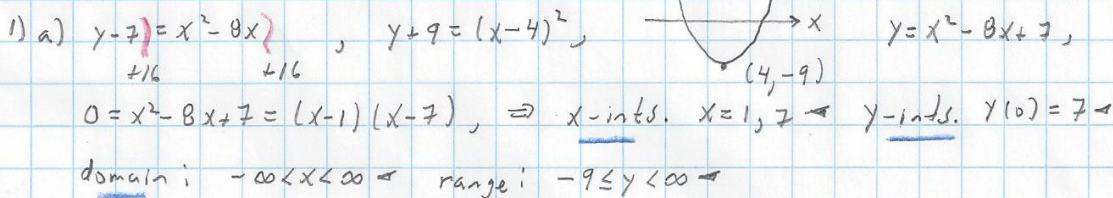 1) a) y-7) = x² - 8x) , y+9 = (x-4)², x y = x² - 8x + 7,
+16 +16 (4,-9)
0 = x² - 8x + 7 = (x-1)(x-7), ⇒ x-ints. x = 1, 7 y-ints. y(0) = 7
domain: -∞<x<∞ range: -9≤y<∞